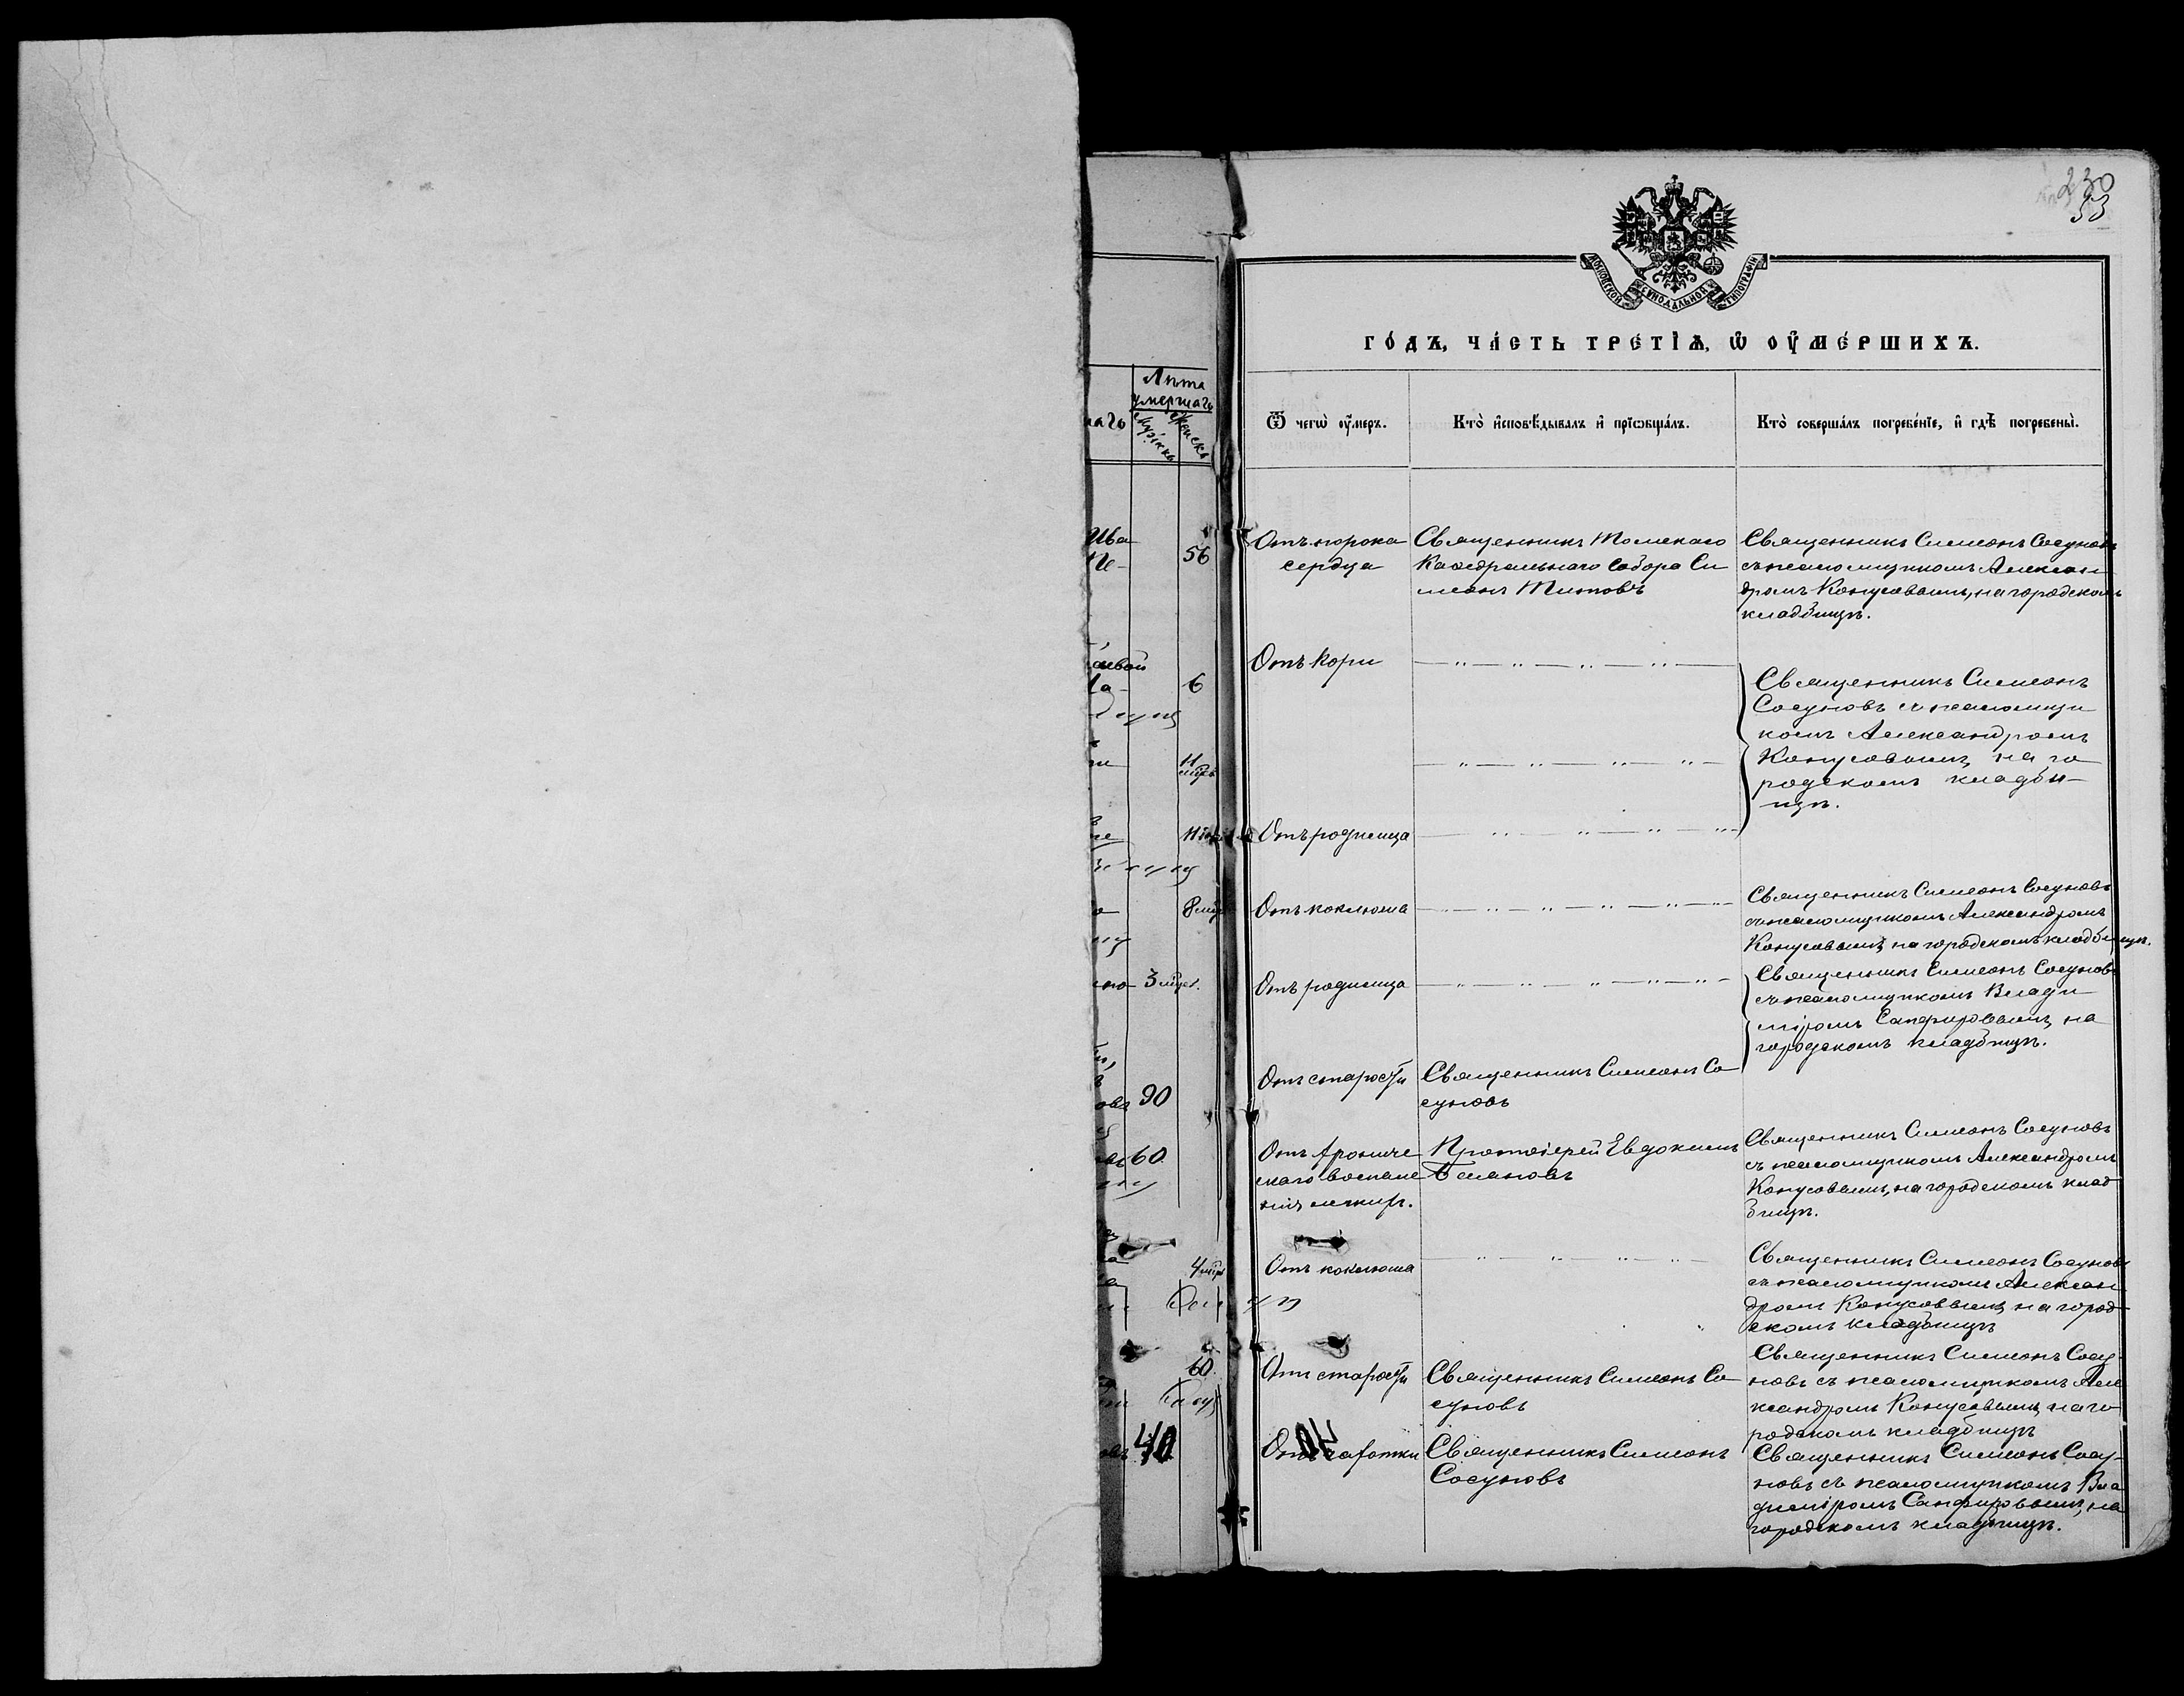 230
53
МОСКОВСКОЙ СѴНОДАЛЬНОЙ ТИПОГРАФІИ
ГОДЪ, ЧАСТЬ ТРЕТІЯ, Ѡ ОУМЕРШИХЪ.
Лѣта
умершаго
Мужска
Женска
Ѿ чегѡ оумеръ.
Кто исповѣдывалъ и прїѡбщалъ.
Кто совершалъ погребенїе, и гдѣ погребены.
Ива
56
Отъ порока
сердца
Священникъ Томскаго
Каѳедральнаго Собора Си
меонъ Титовъ
Священникъ Симеонъ Сосуновъ
съ псаломщикомъ Алексан
дромъ Конусовымъ, на городскомъ
кладбищѣ.
6
Отъ кори
Священникъ Симеонъ
Сосуновъ съ псаломщи
комъ Александромъ
Конусовымъ, на го
родскомъ кладби-
щѣ.
11
мѣс
Отъ родимца
8 мѣс
Отъ коклюша
Священникъ Симеонъ Сосуновъ
съ псаломщикомъ Александромъ
Конусовымъ, на городскомъ кладбищѣ.
3 мѣс.
Отъ родимца
Священникъ Симеонъ Сосуновъ
съ псаломщикомъ Влади
міромъ Сапфировымъ, на
городскомъ кладбищѣ.
90
Отъ старости
Священникъ Симеонъ Со
суновъ
60
Отъ хрониче
скаго воспале
нія легкихъ.
Протоіерей Евдокимъ
Священникъ Симеонъ Сосуновъ
съ псаломщикомъ Александромъ
Конусовымъ, на городскомъ клад
бищѣ.
4 мѣс
Отъ коклюша
Священникъ Симеонъ Сосуновъ
съ псаломщикомъ Алексан
дромъ Конусовымъ, на город
скомъ кладбищѣ
60
Отъ старости
Священникъ Симеонъ Со
суновъ
Священникъ Симеонъ Сосу-
новъ съ псаломщикомъ Але
ксандромъ Конусовымъ, на го
родскомъ кладбищѣ
40
Отъ чахотки
Священникъ Симеонъ
Сосуновъ
Священникъ Симеонъ Сосу-
новъ съ псаломщикомъ Вла
диміромъ Сапфировымъ, на
городскомъ кладбищѣ.